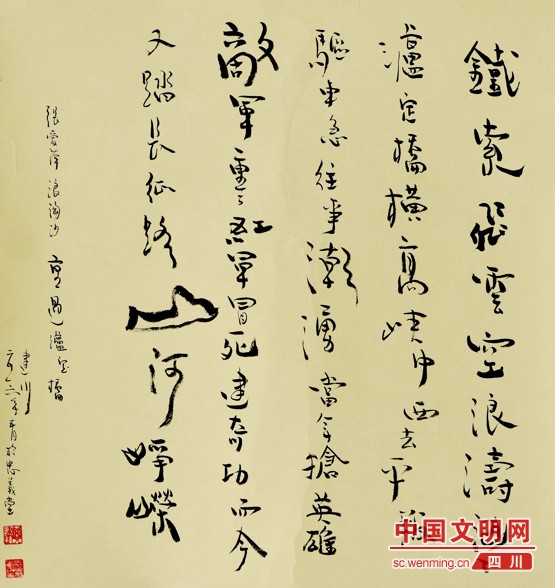 鐵索飛雲空浪濤洶
瀘定橋橫高峽中西去平
驅車急往事潮湧當年搶英雄
敵軍重々紅軍冒死建奇功而今
又踏長征路山河崢嶸
張愛萍浪淘沙過瀘定橋
建川
六年月於忠義堂
中国文明网
sc.wenming.cn 四川